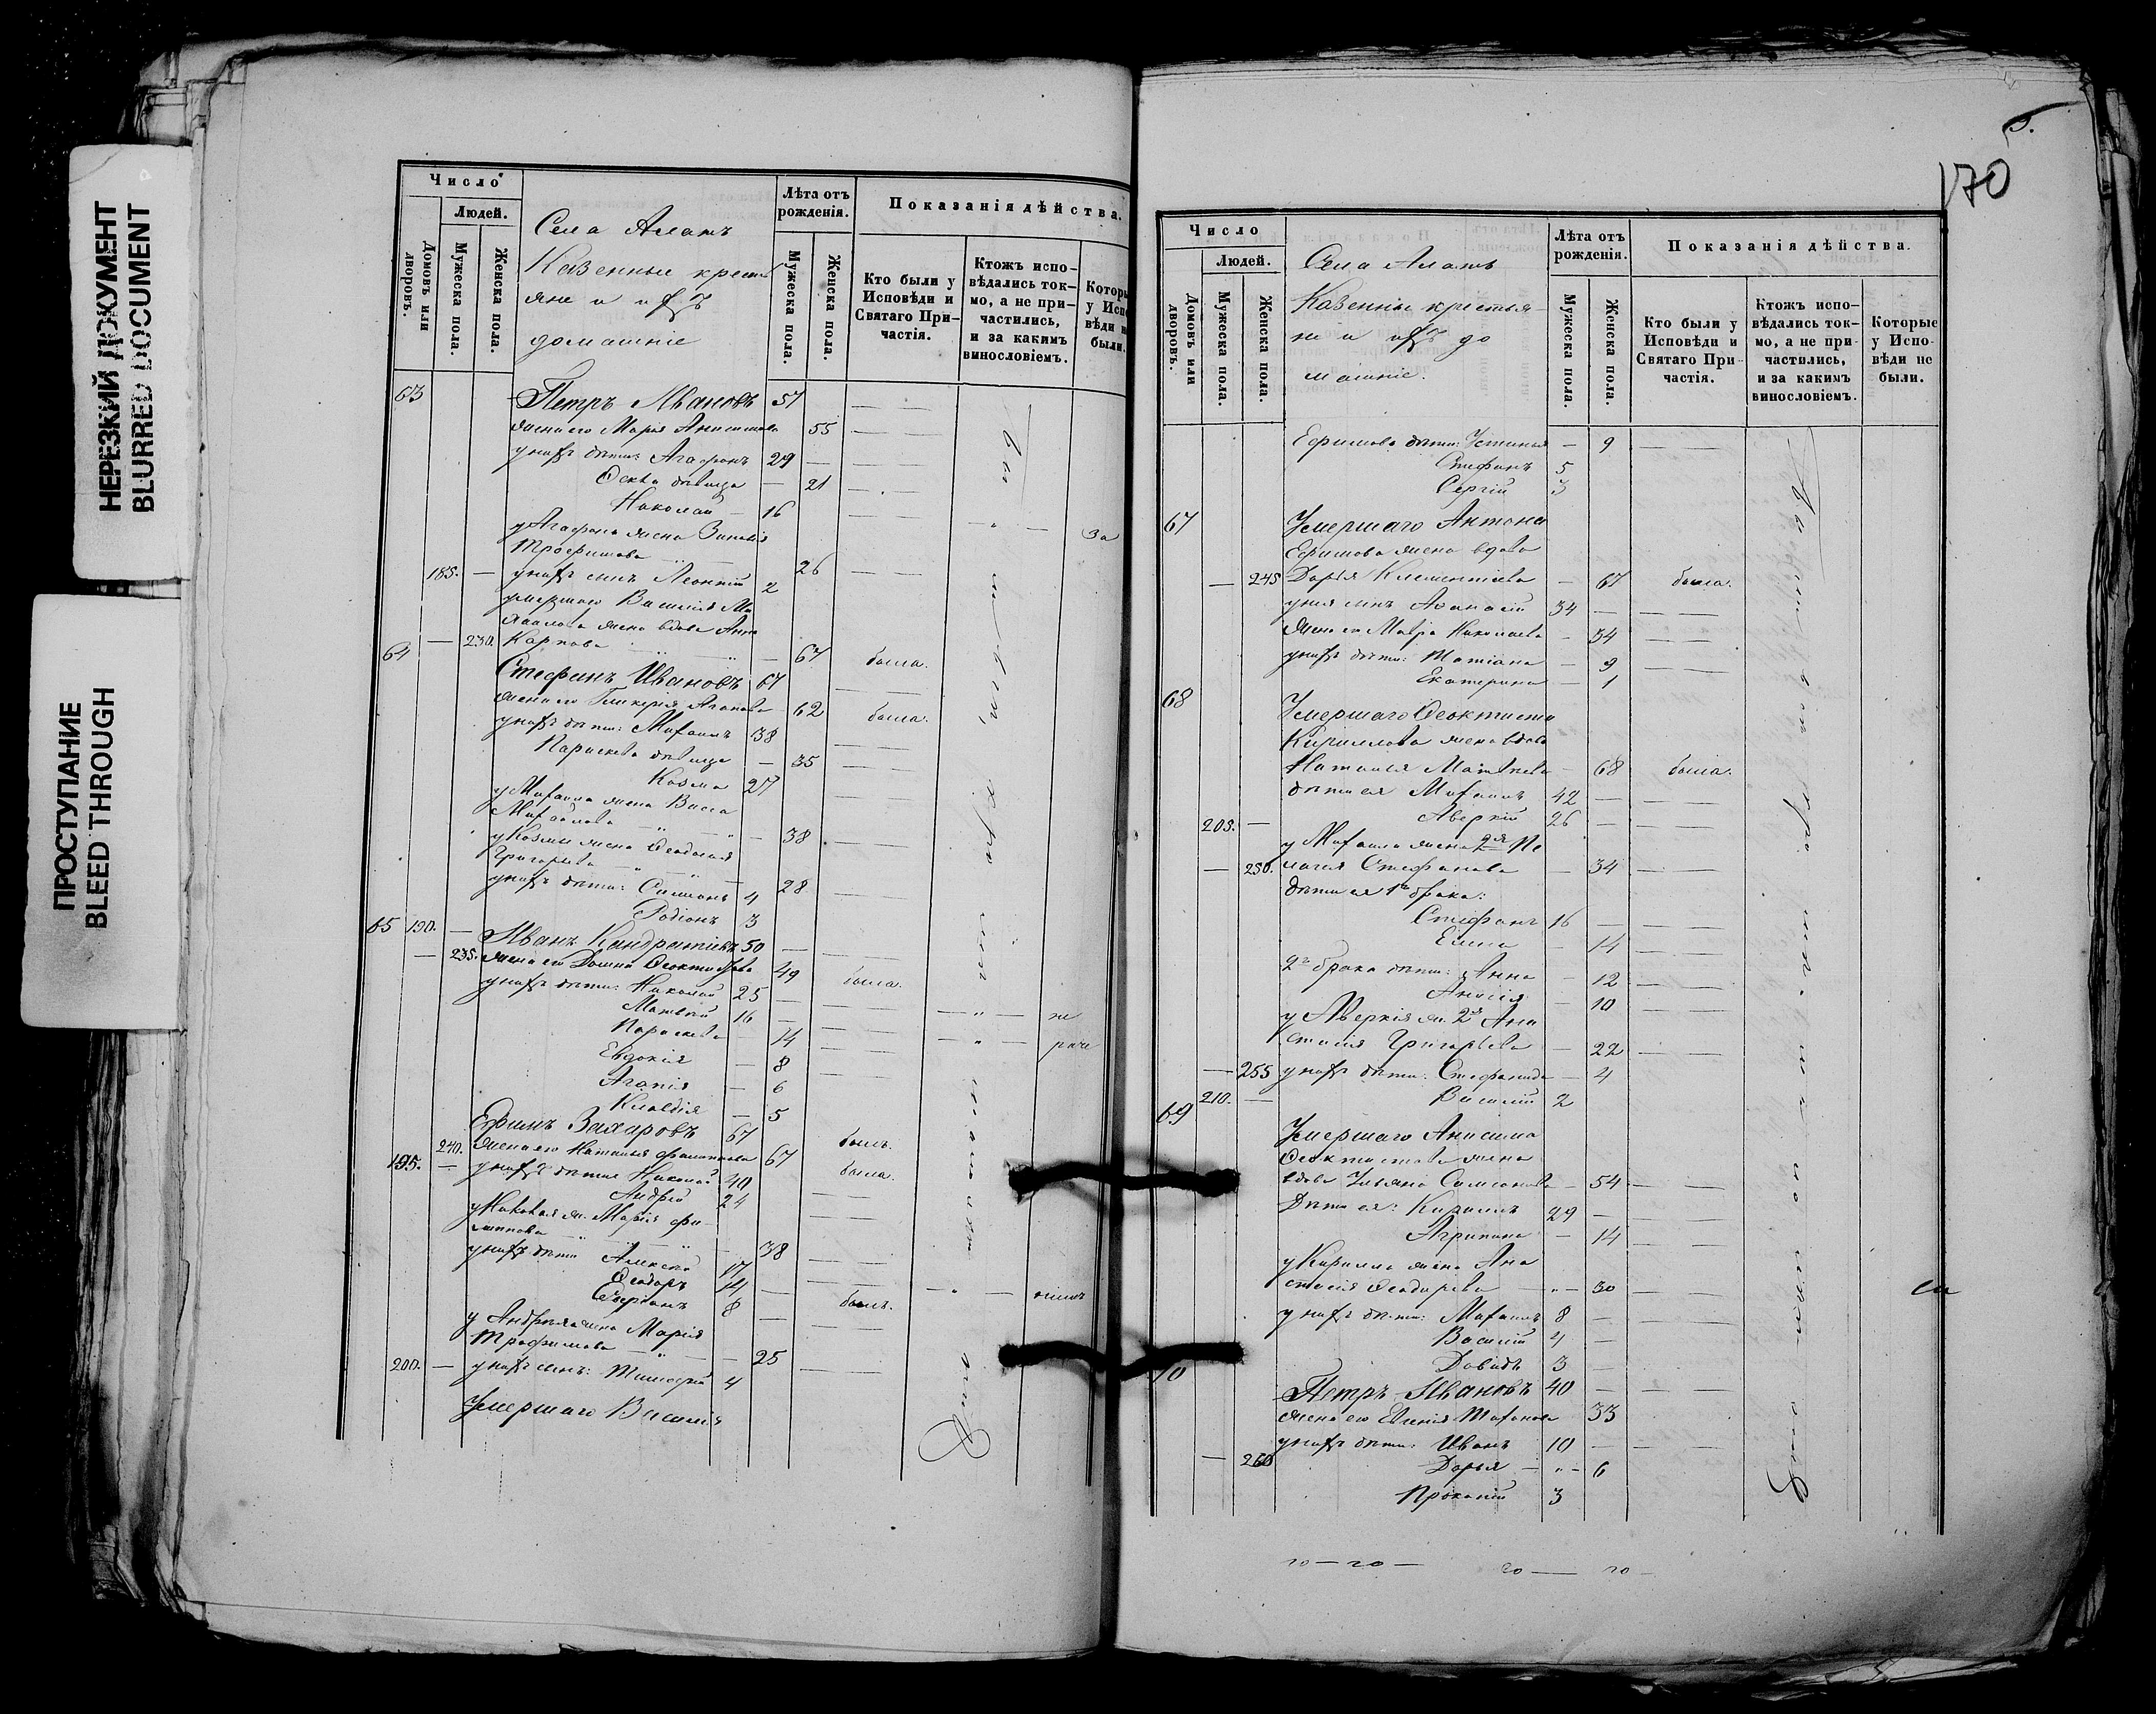 НЕРЕЗКИЙ ДОКУМЕНТ
BLURRED DOCUMENT
ПРОСТУПАНИЕ
BLEED THROUGH
Число
Людей.
Домовъ или дворовъ.
Мужеска пола.
Женска пола.
Села Алатъ
Казенные крестъ
яне и ихъ
домашніе
Лѣта отъ рожденія.
Мужеска пола.
Женска пола.
Показанія дѣйства.
Кто были у Исповѣди и Святаго Причастія.
Ктожъ исповѣдались токмо, а не причастились, и за какимъ винословіемъ.
Которы у Исповѣди н были.
63 Петръ Ивановъ 57
жена его Марія Анисимова 55
у нихъ дѣти: Агафонъ 29
Ѳекла дѣвица 21
Николай 16
у Агафона жена Зиновія
Трофимова 26
185. у нихъ сынъ Леонтій 2
умершаго Василія Ми
хайлова жена вдова Анна
230. Карпова 67 была.
64 Стефанъ Ивановъ 67
жена его Гликерія Агапова 62 была.
у нихъ дѣти: Михаилъ 38
Параскева дѣвица 35
Козма 27
у Михаила жена Васса
Михайлова 38
у Козмы жена Ѳеодосія
Григорьева 28
у нихъ дѣти: Симеонъ 4
Родіонъ 3
65 190. Иванъ Кандратіевъ 50
235. жена его Домна Ѳеоктистова 49 была.
у нихъ дѣти: Николай 25
Матвѣй 16 не
Параскева 14 раче
Евдокія 8
Агапія 6
Клавдія 5
Ефимъ Захаровъ 67 былъ.
240. жена его Наталья Филиппова 67 была.
195. у нихъ дѣти Николай 40
Андрей 24
у Николая ж. Марія Фи-
липпова 38
у нихъ дѣти Алексѣй 17
Ѳеодоръ 14 ніемъ
8 былъ.
у Андрея жена Марія
Трофимова 25
200. у нихъ сынъ: Тимофей 4
Умершаго Василія
5.
170
Число
Людей.
Домовъ или дворовъ.
Мужеска пола.
Женска пола.
Села Алатъ
Казенные крестья-
не и ихъ до
машніе.
Лѣта отъ рожденія.
Мужеска пола.
Женска пола.
Показанія дѣйства.
Кто были у Исповѣди и Святаго Причастія.
Ктожъ исповѣдались токмо, а не причастились, и за какимъ винословіемъ.
Которые у Исповѣди не были.
Ефимова дѣти: Устинья 9
Стефанъ 5
Сергій 3
67 Умершаго Антона
Ефимова жена вдова
245 Дарья Климентіева 67 была.
у нея сынъ Аѳанасій 34
жена его Мавра Николаева 34
у нихъ дѣти: Татіана 9
Екатерина 1
68 Умершаго Ѳеоктиста
Кириллова жена вдова
Наталья Матвѣева 68 была.
дѣти ея Михаилъ 42
205. Аверкій 26
у Михаила жена 2я Пе
250. лагея Стефанова 34
дѣти ея 1го брака:
Стефанъ 16
Елена 14
2го брака дѣти: Анна 12
Анисія 10
у Аверкія ж. 2я Ана
стасія Григорьева 22
255 у нихъ дѣти: Стефанида 4
210. Василій 2
69 Умершаго Анисима
Ѳеоктистова жена
вдова Ульяна Симеонова 54
Дѣти ея: Кириллъ 29
Агрипина 14
у Кирилла жена Ана
стасія Ѳеодорова 30
у нихъ дѣти: Михаилъ 8
Василій 4
Давидъ 3
70 Петръ Ивановъ 40
жена его Евгенія 33
у нихъ дѣти: Иванъ 10
260 Дарья 6
Прокопій 3